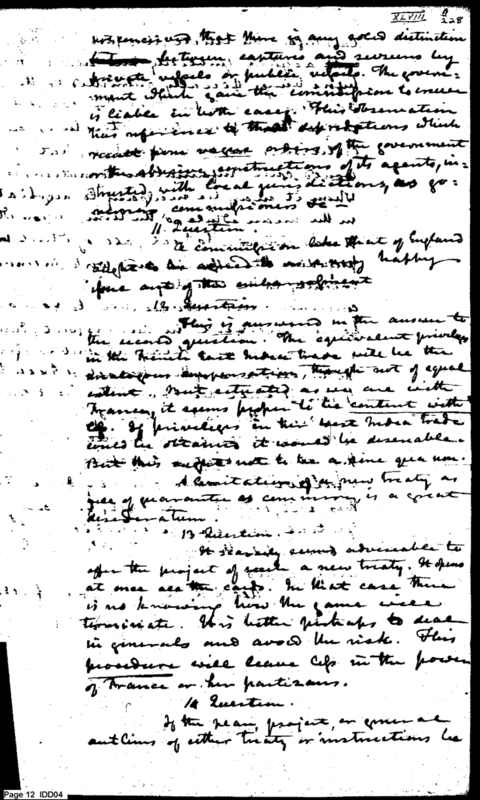 XLVIII 228
that there is any solid distinction
between captures and seizures by
private vessels or public vessels. The govern-
ment which gave the commission to cruise
is liable in both cases. This observation
has reference to those depredations which
result from vague orders of the government
or the abusive constructions of its agents, in-
trusted with local jurisdictions, as go-
commissioners
11 Question.
A commission like that of England
ought to be agreed to as a very happy
one out of the embarrassment
12 Question
This is answered in the answer to
the second question. The equivalent privileges
in the French East Indea trade will be the
analogous compensation, though not of equal
extent. But situated as we are with
France, it seems proper to be content with
If privileges in the West Indea trade
could be obtained it would be desirable.
But this ought not to be a sine qua non.
A limitation of a new treaty as
of guarantee as commerce, is a great
desideratum.
13 Question.
It scarcely seems adviseable to
offer the project of such a new treaty. It opens
at once all the cards. In that case there
is no knowing how the game will
terminate. It is better perhaps to deal
in generals and avoid the risk. This
procedure will leave less in the power
of France or her partizans.
14 Question.
If the plan, project, or general
outlines of either treaty or instructions be
Page 12 IDD04